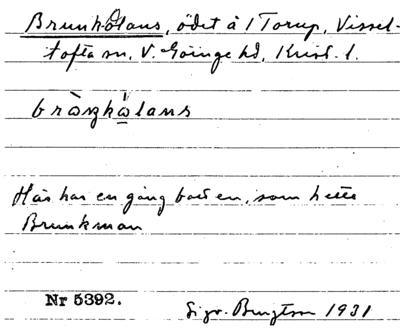 Brunkålans, ödet å 1 Torup, Vissel-
tofta sn, V. Göinge hd, Krist. l.
Här har en gång bott en, som hette
Brunkman
Nr 5392.
Sigv. Bengtson 1931